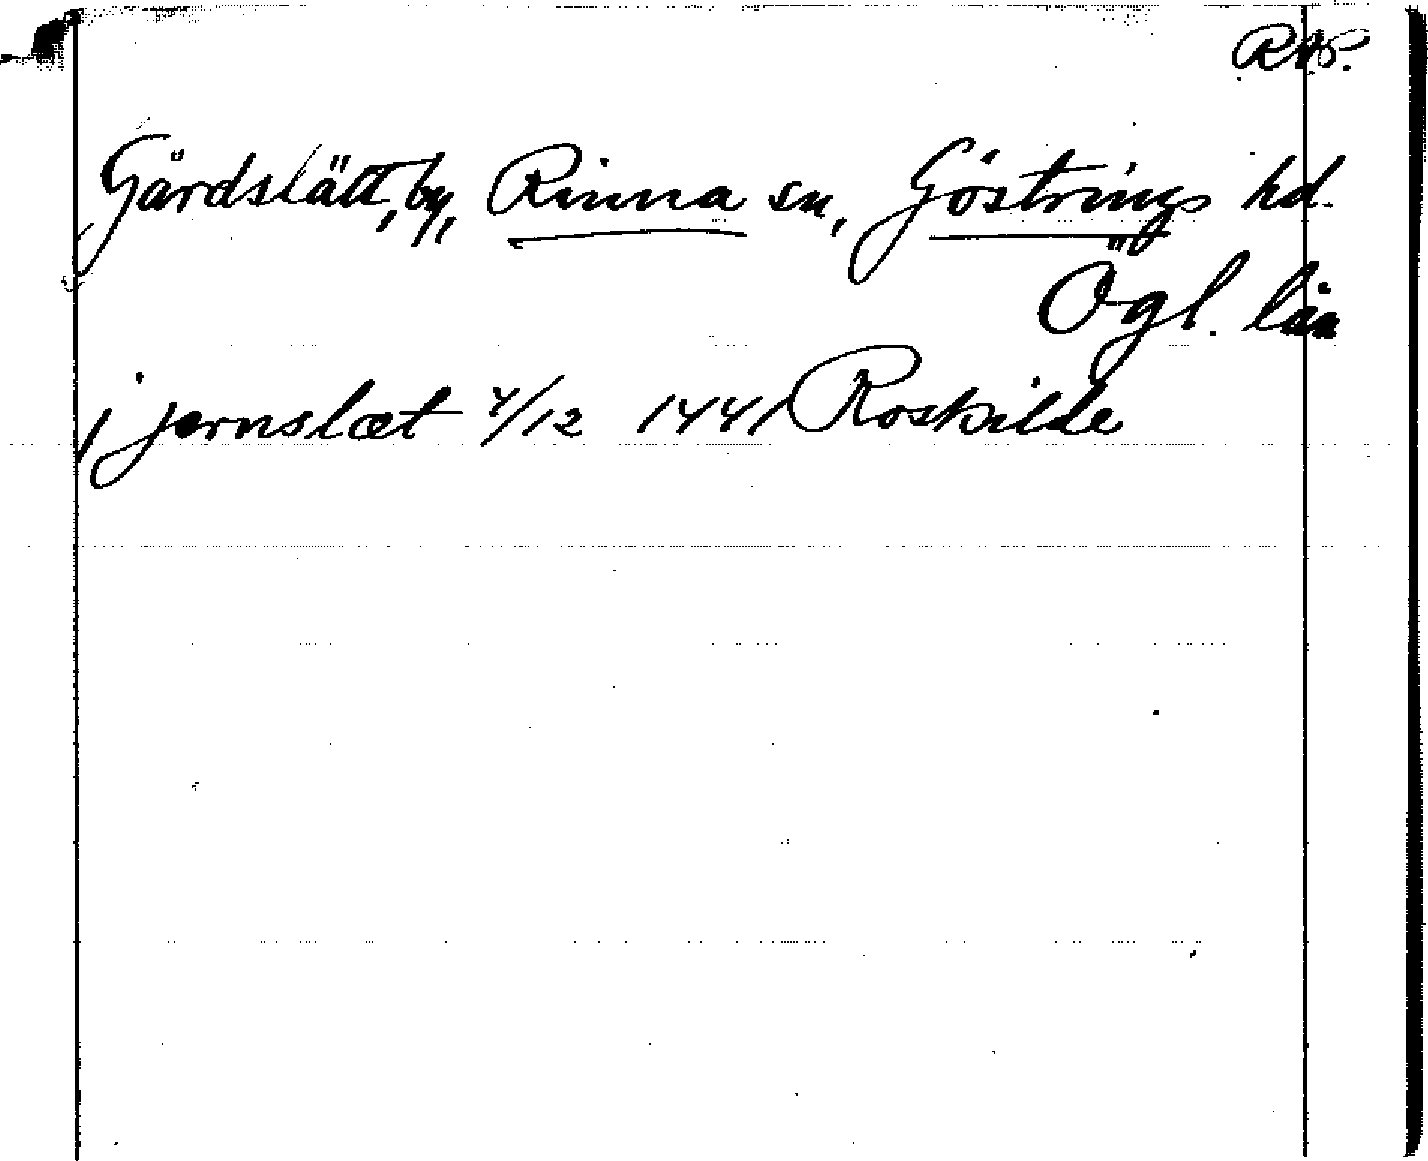 RAP.
Gårdslätt, by, Rinna sn, Göstrings hd.
Ögl. län
j jernslæt 4/12 1441 Roskilde